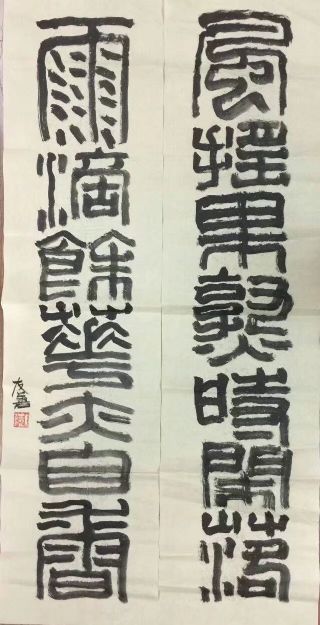 風擇果熟時聞落
雨滴餘華亦自香